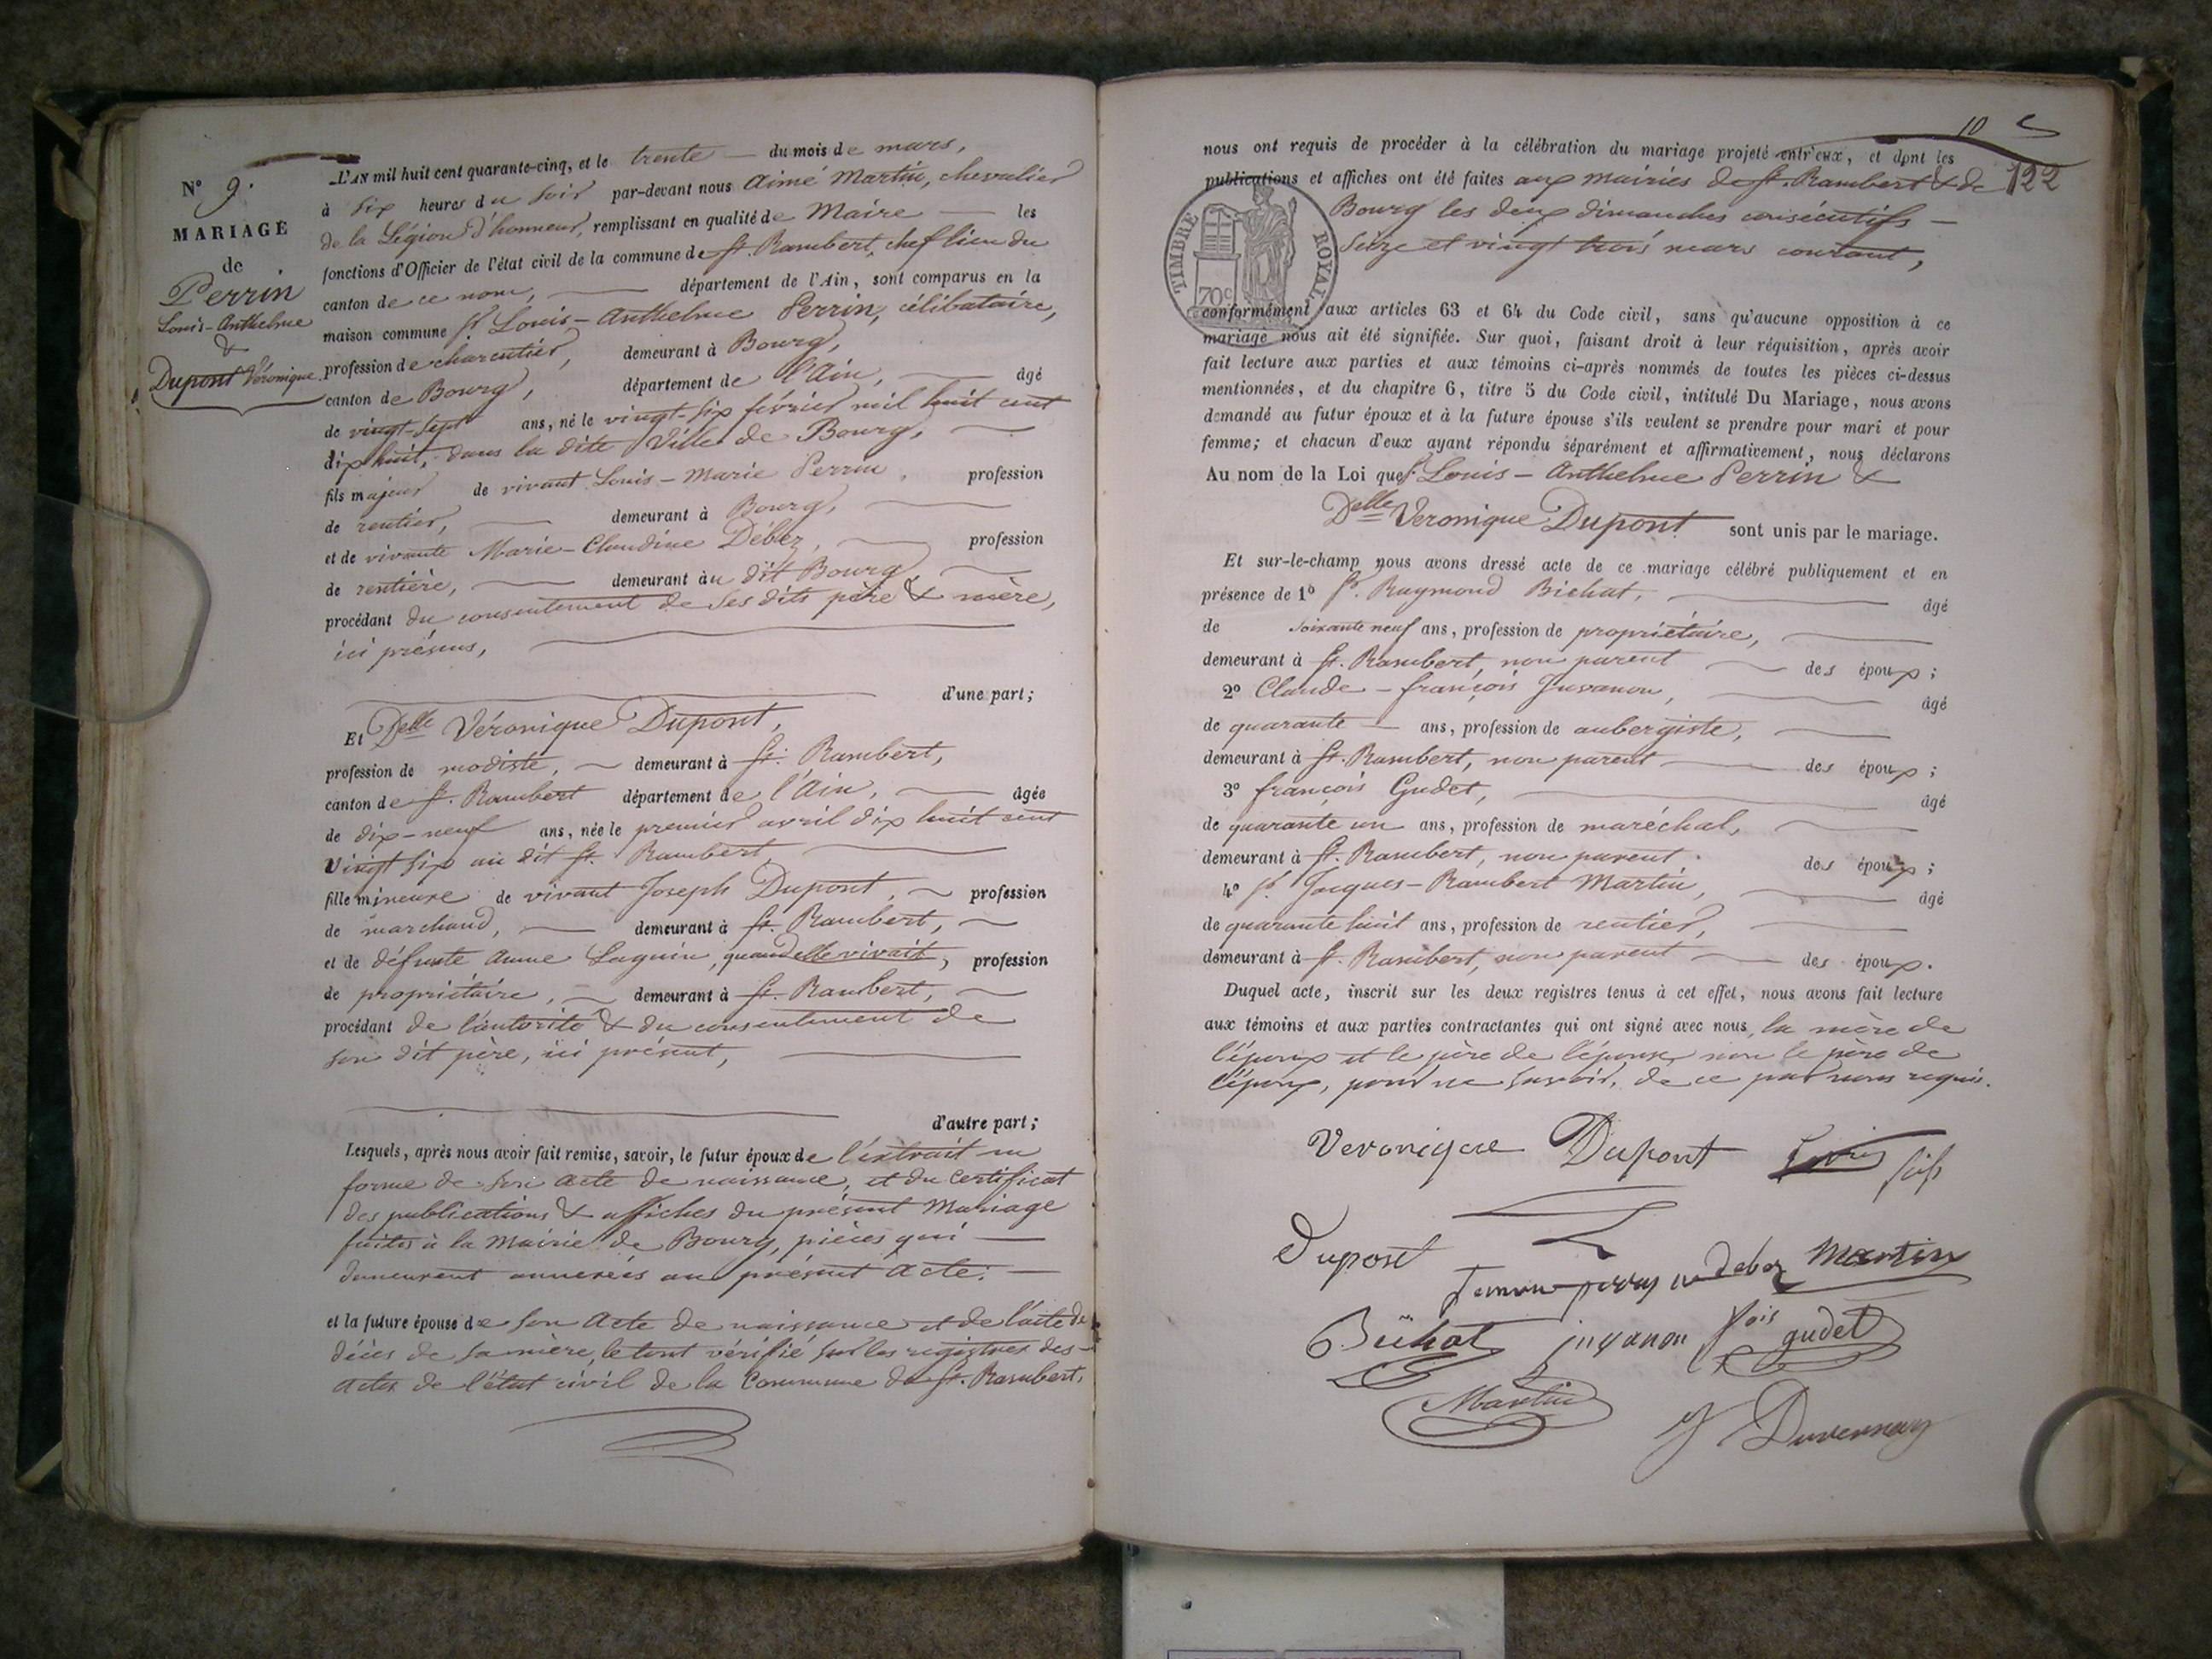 N° 9.
MARIAGE
de
Perrin
Louis-Anthelme
&
Dupont Véronique.
L'AN mil huit cent quarante-cinq, et le trente du mois de mars,
à six heures du soir par-devant nous Aimé Martin, chevalier
de la Légion d'honneur, remplissant en qualité de Maire les
fonctions d'Officier de l'état civil de la commune de St. Rambert, chef lieu du
canton de ce nom, département de l'Ain, sont comparus en la
maison commune Sr. Louis-Anthelme Perrin, célibataire,
profession de charcutier, demeurant à Bourg,
canton de Bourg, département de l'Ain, âgé
de vingt-sept ans, né le vingt-six février mil huit cent
dix huit, dans la dite Ville de Bourg,
fils majeur de vivant Louis-Marie Perrin, profession
de rentier, demeurant à Bourg,
et de vivante Marie-Claudine Débez, profession
de rentière, demeurant au dit Bourg
procédant du consentement de ses dits père & mère,
ici présens,
d'une part;
Et Delle Véronique Dupont,
profession de modiste, demeurant à St. Rambert,
canton de St. Rambert département de l'Ain, âgée
de dix-neuf ans, née le premier avril dix huit cent
vingt six au dit St. Rambert
fille mineure de vivant Joseph Dupont, profession
de marchand, demeurant à St. Rambert,
et de défunte Anne Laguin, quand elle vivait, profession
de propriétaire, demeurant à St. Rambert,
procédant de l'autorité & du consentement de
son dit père, ici présent,
d'autre part;
Lesquels, après nous avoir fait remise, savoir, le futur époux de l'extrait en
forme de son acte de naissance, et du certificat
des publications & affiches du présent Mariage
faites à la Mairie de Bourg, pièces qui
demeurent annexées au présent acte.
et la future épouse de son acte de naissance et de l'acte de
décès de sa mère, le tout vérifié sur les registres des
actes de l'état civil de la Commune de St. Rambert.
10
122
nous ont requis de procéder à la célébration du mariage projeté entr'eux, et dont les
publications et affiches ont été faites aux mairies de St. Rambert & de
Bourg les deux dimanches consécutifs
seize et vingt trois mars courant,
TIMBRE ROYAL
70 c
conformément aux articles 63 et 64 du Code civil, sans qu'aucune opposition à ce
mariage nous ait été signifiée. Sur quoi, faisant droit à leur réquisition, après avoir
fait lecture aux parties et aux témoins ci-après nommés de toutes les pièces ci-dessus
mentionnées, et du chapitre 6, titre 5 du Code civil, intitulé Du Mariage, nous avons
demandé au futur époux et à la future épouse s'ils veulent se prendre pour mari et pour
femme; et chacun d'eux ayant répondu séparément et affirmativement, nous déclarons
Au nom de la Loi que Sr. Louis-Anthelme Perrin &
Delle Veronique Dupont sont unis par le mariage.
Et sur-le-champ nous avons dressé acte de ce mariage célébré publiquement et en
présence de 1° Sr. Raymond Bichat, âgé
de soixante neuf ans, profession de propriétaire,
demeurant à St. Rambert, non parent des époux;
2° Claude-françois Juvanon, âgé
de quarante ans, profession de aubergiste,
demeurant à St. Rambert, non parent des époux;
3° françois Gudet, âgé
de quarante un ans, profession de maréchal,
demeurant à St. Rambert, non parent des époux;
4° Sr. Jacques-Rambert Martin, âgé
de quarante huit ans, profession de rentier,
demeurant à St. Rambert, non parent des époux.
Duquel acte, inscrit sur les deux registres tenus à cet effet, nous avons fait lecture
aux témoins et aux parties contractantes qui ont signé avec nous, la mère de
l'époux et le père de l'épouse, non le père de
l'époux, pour ne savoir, de ce par nous requis.
Veronique Dupont Perrin fils
Dupont
debez Martin
Bichat juvanon fois gudet
Martin
J Duvernay